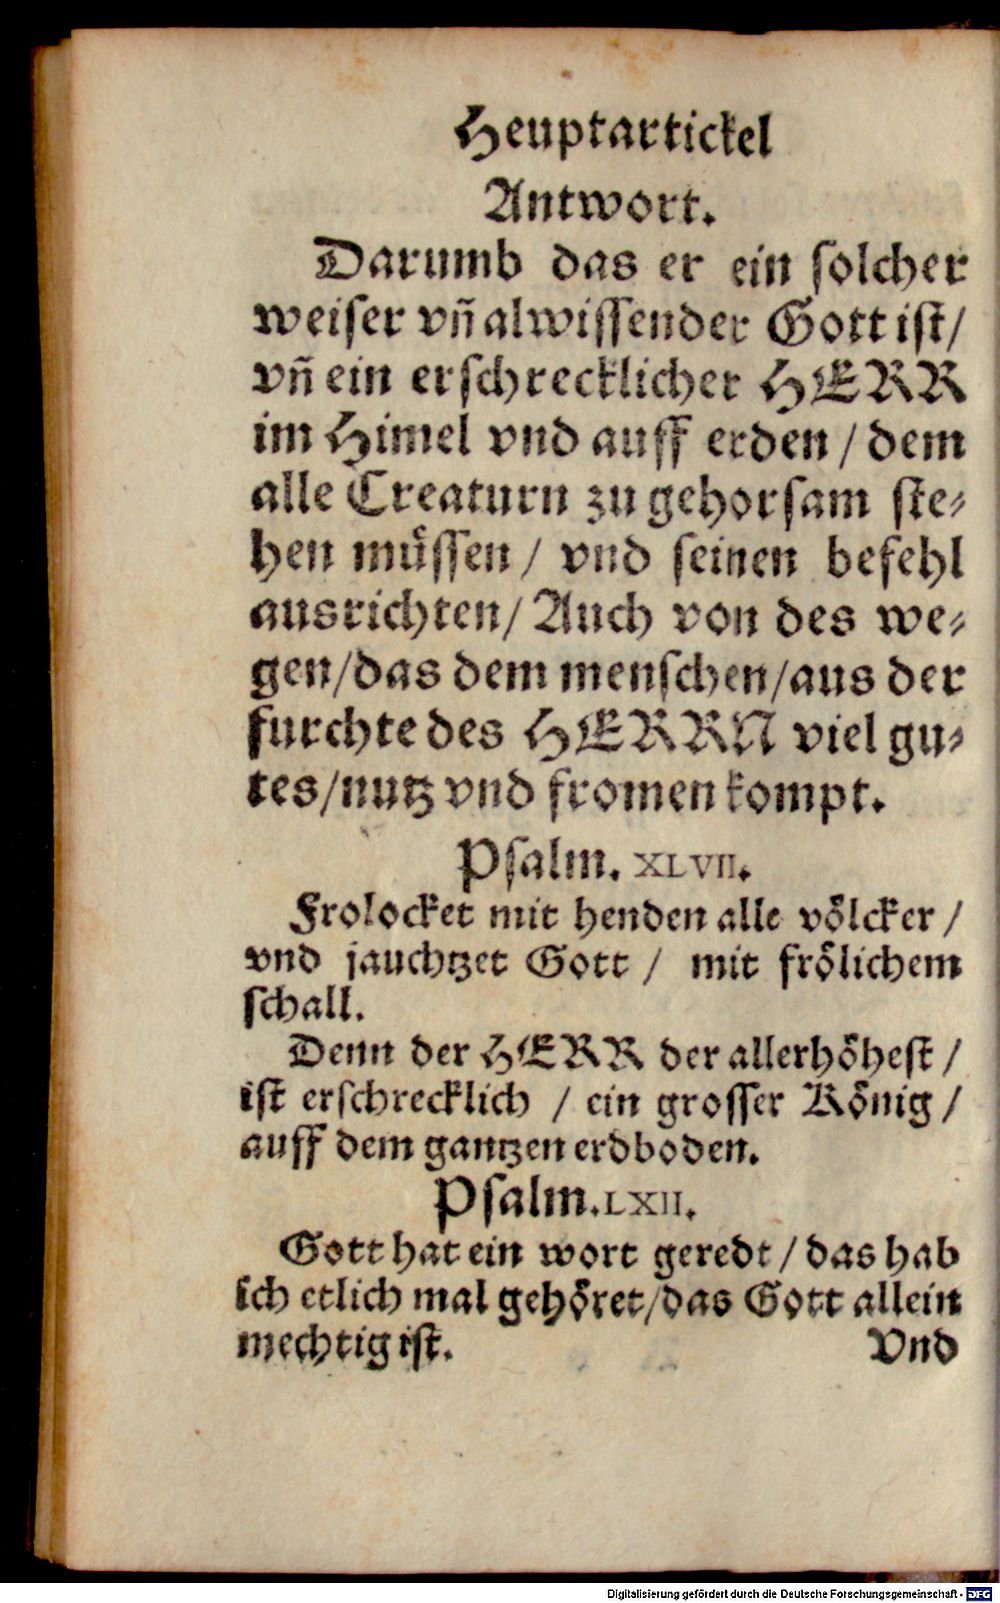 Heuptartickel
Antwort.
Darumb das er ein solcher
weiser vñ alwissender Gott ist/
vñ ein erschrecklicher HERR
im Himel vnd auff erden / dem
alle Creaturn zu gehorsam ste⸗
hen müssen / vnd seinen befehl
ausrichten/ Auch von des we⸗
gen/das dem menschen/aus der
furchte des HERRN viel gu⸗
tes/nutz vnd fromen kompt.
Psalm. XLVII.
Frolocket mit henden alle völcker /
vnd jauchtzet Gott / mit frölichem
schall.
Denn der HERR der allerhöhest /
ist erschrecklich / ein grosser König /
auff dem gantzen erdboden.
Psalm. LXII.
Gott hat ein wort geredt / das hab
ich etlich mal gehöret/das Gott allein
mechtig ist.
Vnd
Digitalisierung gefördert durch die Deutsche Forschungsgemeinschaft - DFG